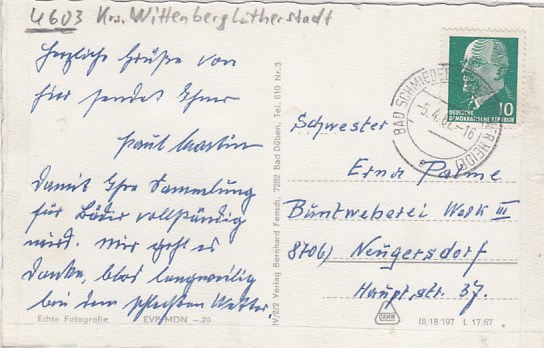 4603 Krs. Wittenberg Lutherstadt
Herzliche Grüße von
hier sendet Ihnen
Paul Martin
Damit Ihre Sammlung
für Bäder vollständig
wird. Mir geht es
Danke, blos langweilig
bei dem schlechten Wetter
Echte Fotografie EVP MDN –.20
IV/2/2 Verlag Bernhard Fensch, 7282 Bad Düben, Tel. 610 Nr. 3
BAD SCHMIEDEBERG
-5.4.67.-16
DEUTSCHE
DEMOKRATISCHE REPUBLIK
10
Schwester
Erna Palme
Buntweberei Werk III
8706) Neugersdorf
Hauptstr. 37.
DAMW
III/18/197 L 17/67